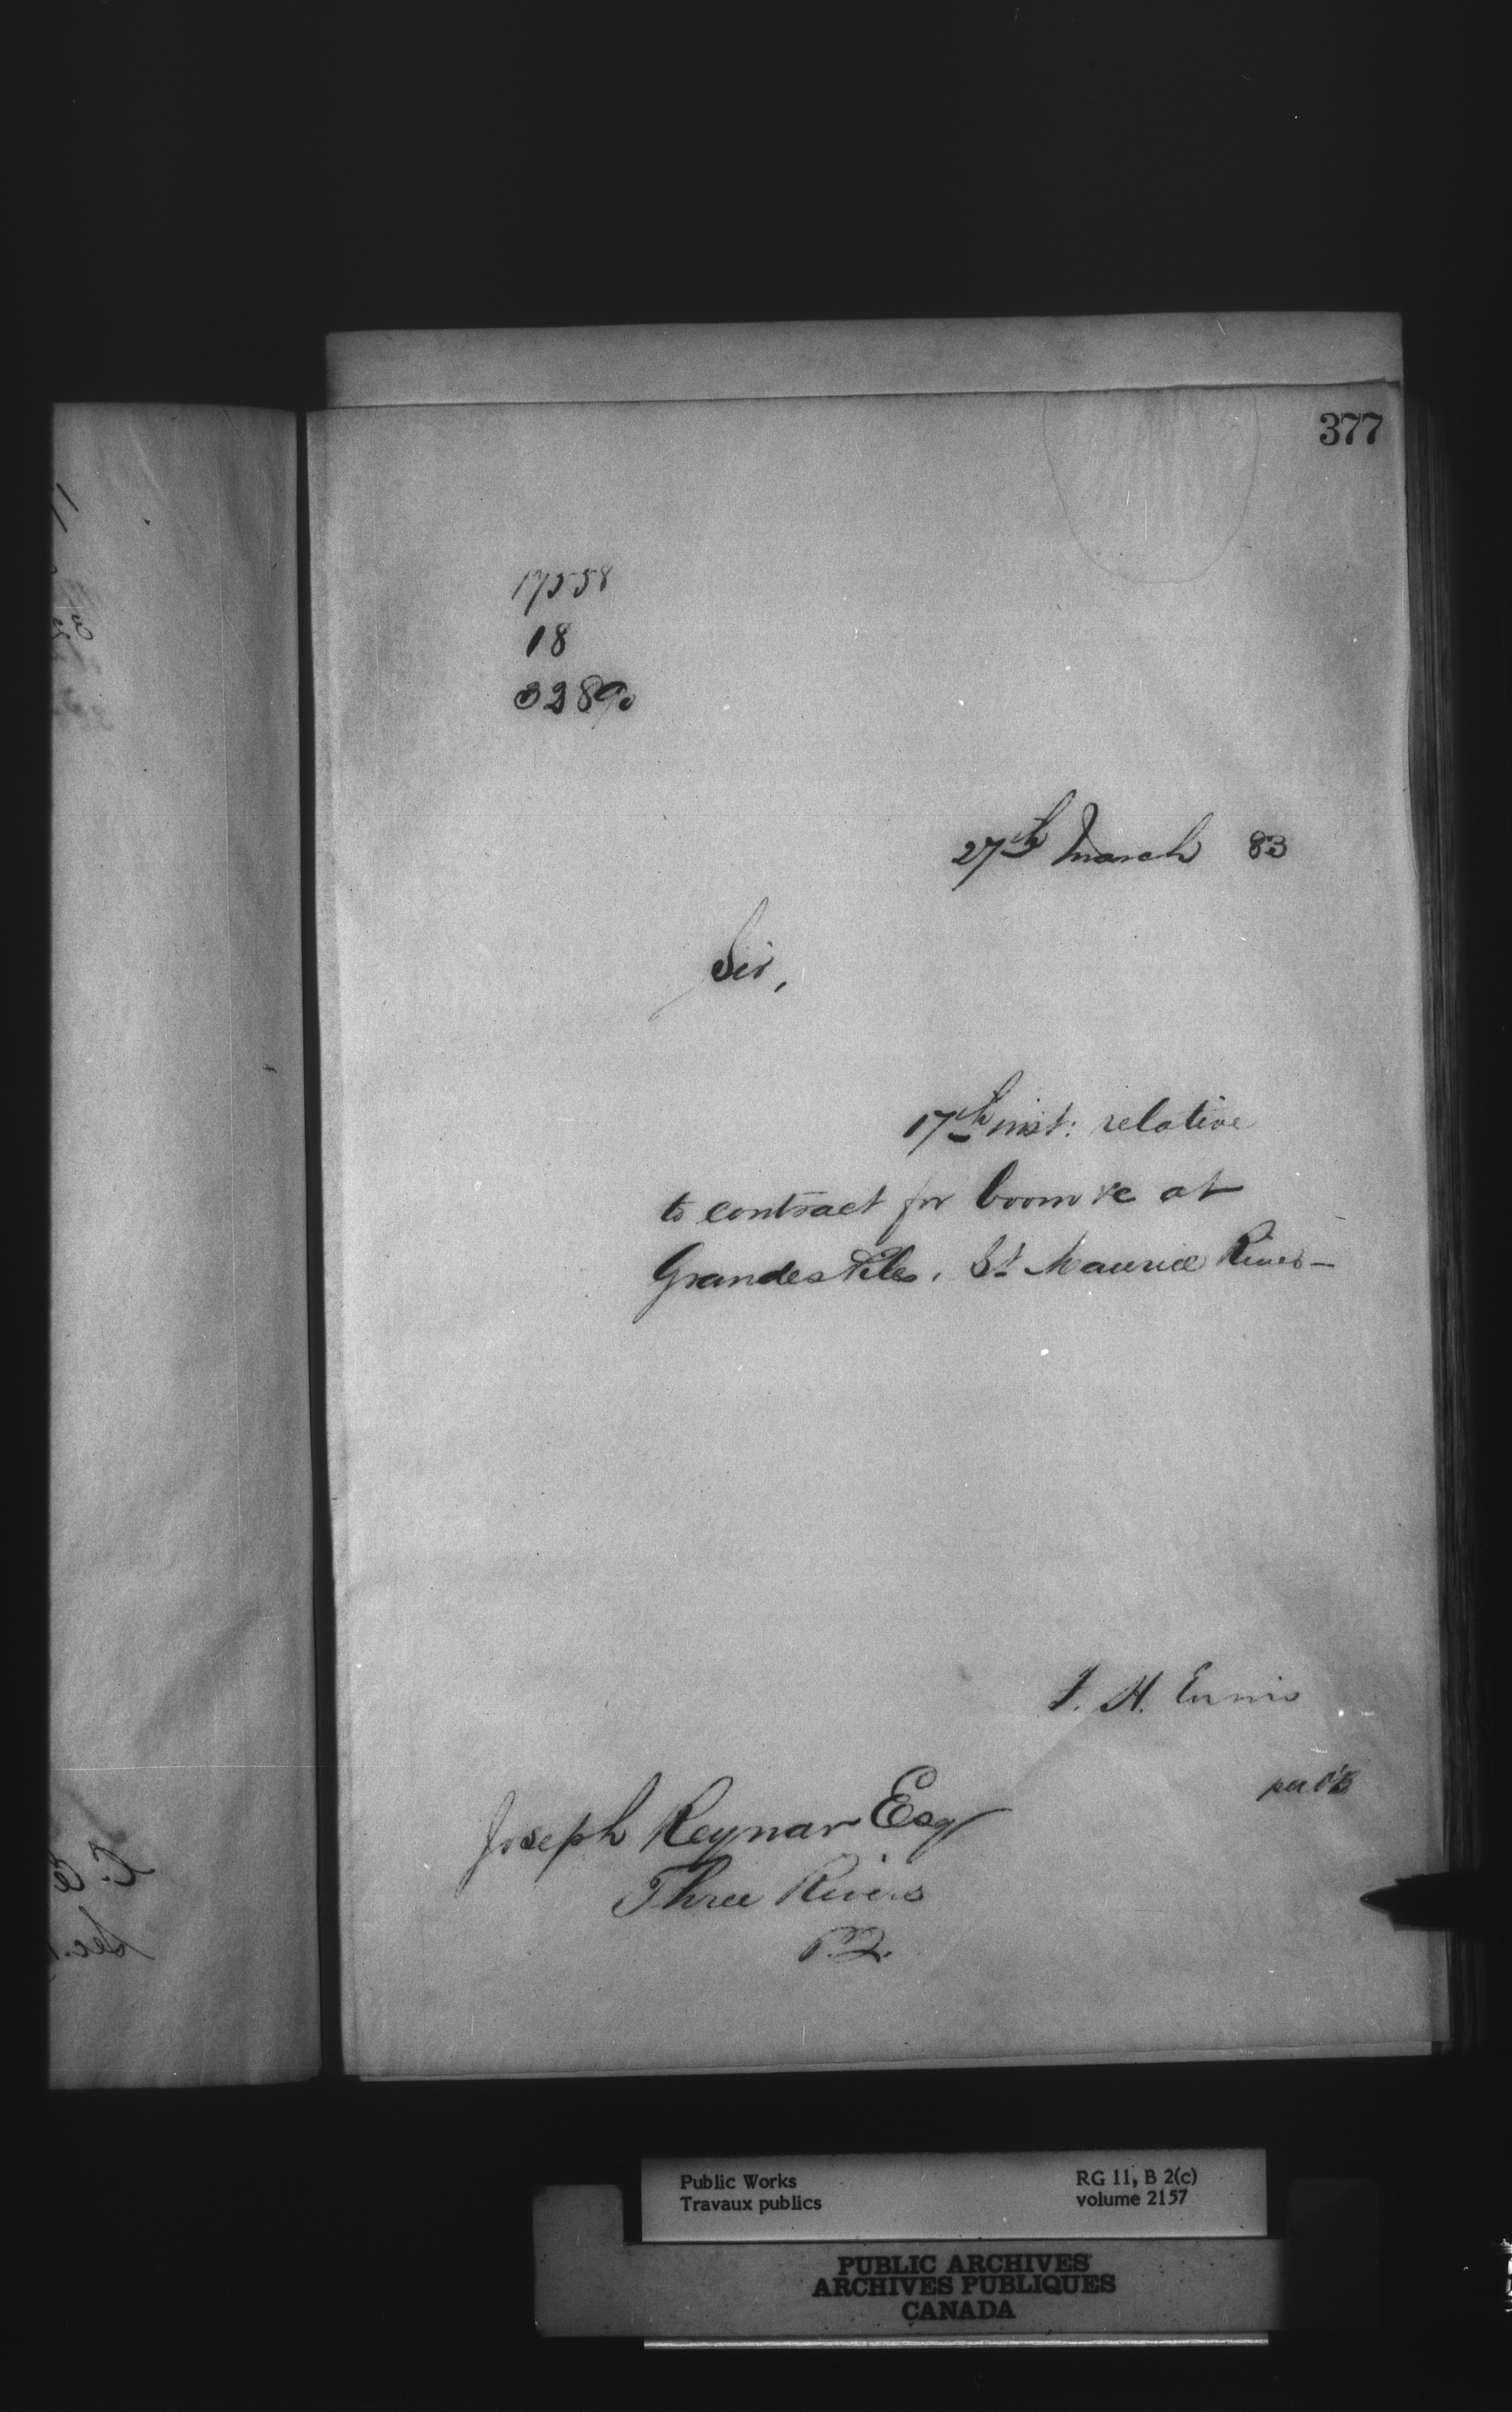 377
17558
18
32890
27th March 83
Sir,
17th inst: relative
to contract for boom &c at
Grandes Piles, St Maurice River —
F. H. Ennis
per O'B
Joseph Reynar Esq
Three Rivers
P.Q.
Public Works
Travaux publics
RG 11, B 2(c)
volume 2157
PUBLIC ARCHIVES
ARCHIVES PUBLIQUES
CANADA